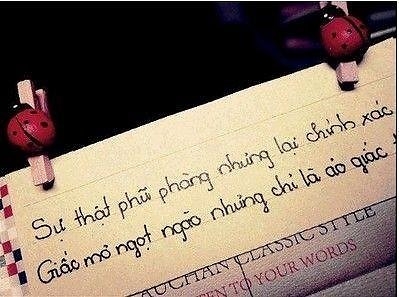 Sự thật phũ phàng nhưng lại chính xác
Giấc mơ ngọt ngào nhưng chỉ là ảo giác
AUCHAN CLASSIC STYLE
TEN TO YOUR WORDS